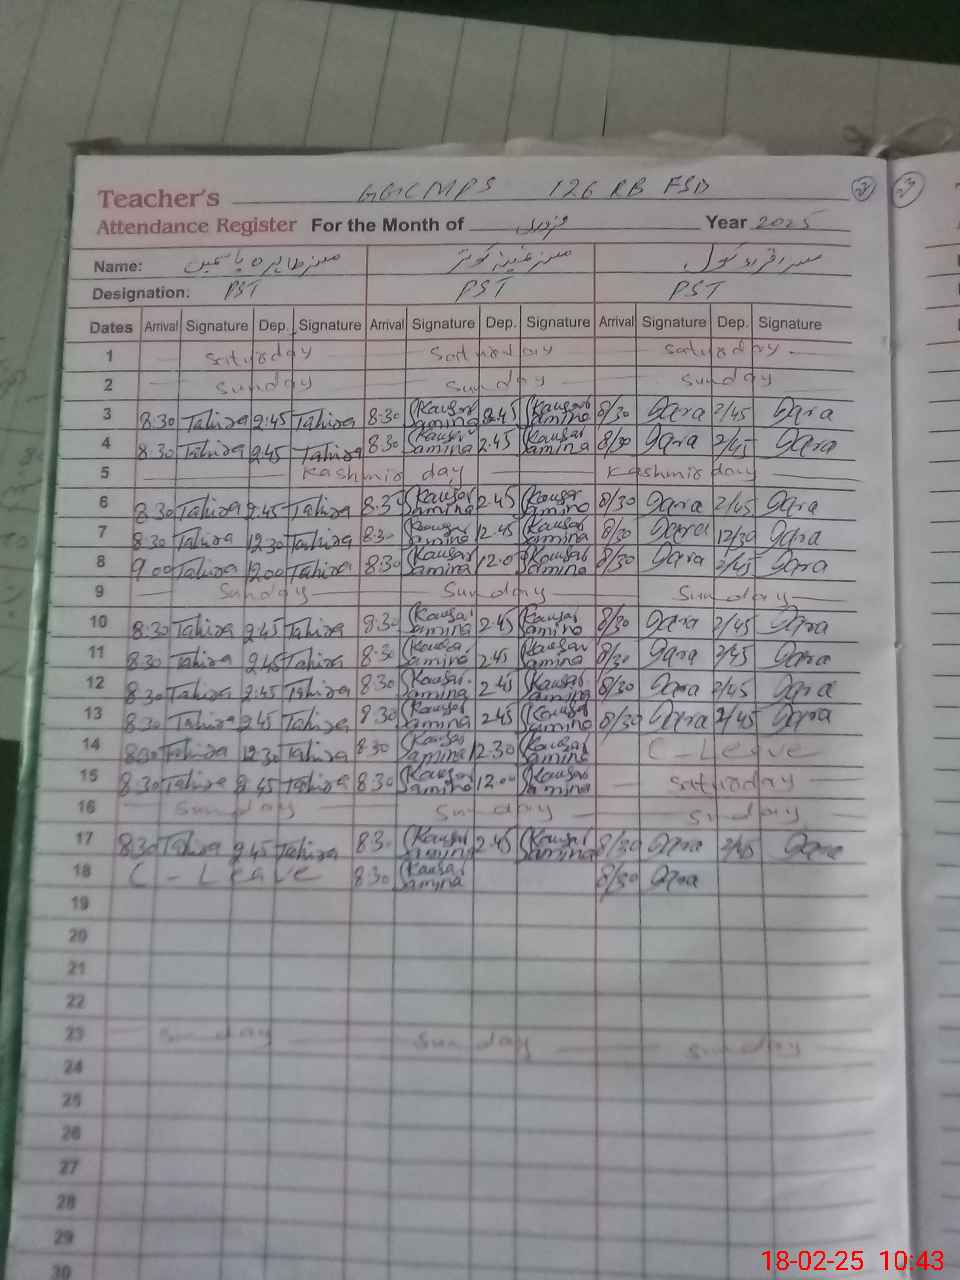 Teacher's GGCMPS 126 RB FSD
Attendance Register For the Month of فروری Year 2025
Name: مسز طاہرہ یاسمین مسز
Designation: PST PST PST
Dates Arrival Signature Dep. Signature Arrival Signature Dep. Signature Arrival Signature Dep. Signature
1 Saturday Saturday Saturday
2 Sunday Sunday Sunday
3 8:30 Tahira 2:45 Tahira 8:30 Kausar Samina 2:45 Kausar Samina 8/30 2/45
4 8:30 Tahira 2:45 Tahira 8:30 Kausar Samina 2.45 Kausar Samina 8/30 2/45
5 Kashmir day Kashmir day
6 8:30 Tahira 2:45 Tahira 8:30 Kausar Samina 2.45 Kausar Samina 8/30 2/45
7 8:30 Tahira 12:30 Tahira 8:30 Kausar Samina 12.45 Kausar Samina 8/30 12/30
8 9 00 Tahira 12 00 Tahira 8:30 Kausar Samina 12.0 Kausar Samina 8/30 2/45
9 Sunday Sunday Sunday
10 8:30 Tahira 2:45 Tahira 8:30 Kausar Samina 2.45 Kausar Samina 8/30 2/45
11 8:30 Tahira 2:45 Tahira 8:30 Kausar Samina 2.45 Kausar Samina 8/30 2/45
12 8:30 Tahira 2:45 Tahira 8:30 Kausar Samina 2.45 Kausar Samina 8/30 2/45
13 8:30 Tahira 2:45 Tahira 8 30 Kausar Samina 2.45 Kausar Samina 8/30 2/45
14 8:30 Tahira 12:30 Tahira 8:30 Kausar Samina 12.30 Kausar Samina C - Leave
15 8:30 Tahira 2:45 Tahira 8 30 Kausar Samina 12.00 Kausar Samina Saturday
16 Sunday Sunday Sunday
17 8:30 Tahira 2:45 Tahira 8:3 Kausar Samina 2.45 Kausar Samina 8/30 2/45
18 C - Leave 8:30 Kausar Samina 8/30
19
20
21
22
23 Sunday Sunday Sunday
24
25
26
27
28
29
30
18-02-25 10:43